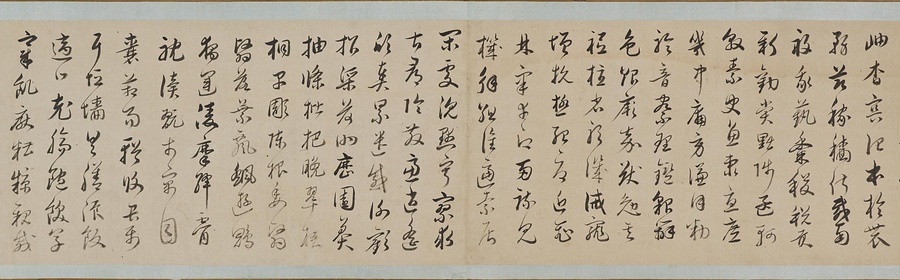 岫杳冥治本於農
務茲稼穡俶載南
畝我藝黍稷稅貢
新勸賞黜陟孟軻
敦素史魚秉直庶
幾中庸勞謙謹勅
聆音察理鑑貌辨
色貽厥嘉猷勉其
祗植省躬譏誡寵
增抗極殆辱近恥
林皋幸即兩疏見
機解組誰逼索居
閒處沉默寂寥求
古尋論散慮逍遙
欣奏累遣慼謝歡
招渠荷的歷園莽
抽條枇杷晚翠梧
桐早彫陳根委翳
落葉飄颻遊鵾
獨運凌摩絳霄
耽讀翫市寓目
囊箱易輶攸畏屬
耳垣牆具膳飡飯
適口充腸飽飫烹
宰飢厭糟糠親戚